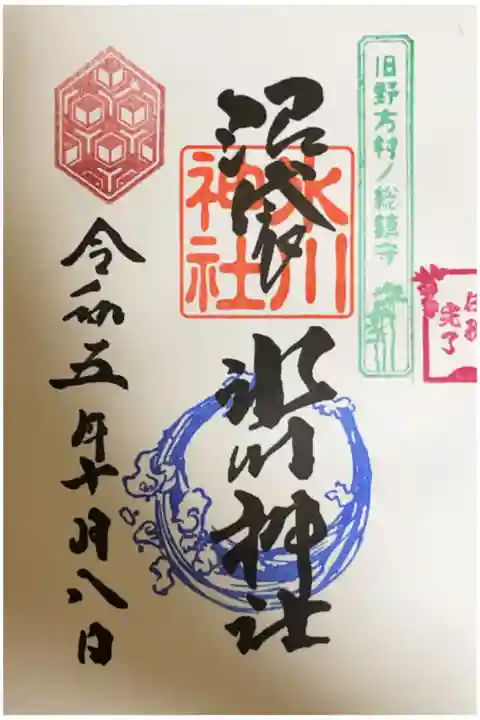 旧野方村ノ総鎮守
完了
沼袋
氷川神社
氷川
神社
令和五年十月八日